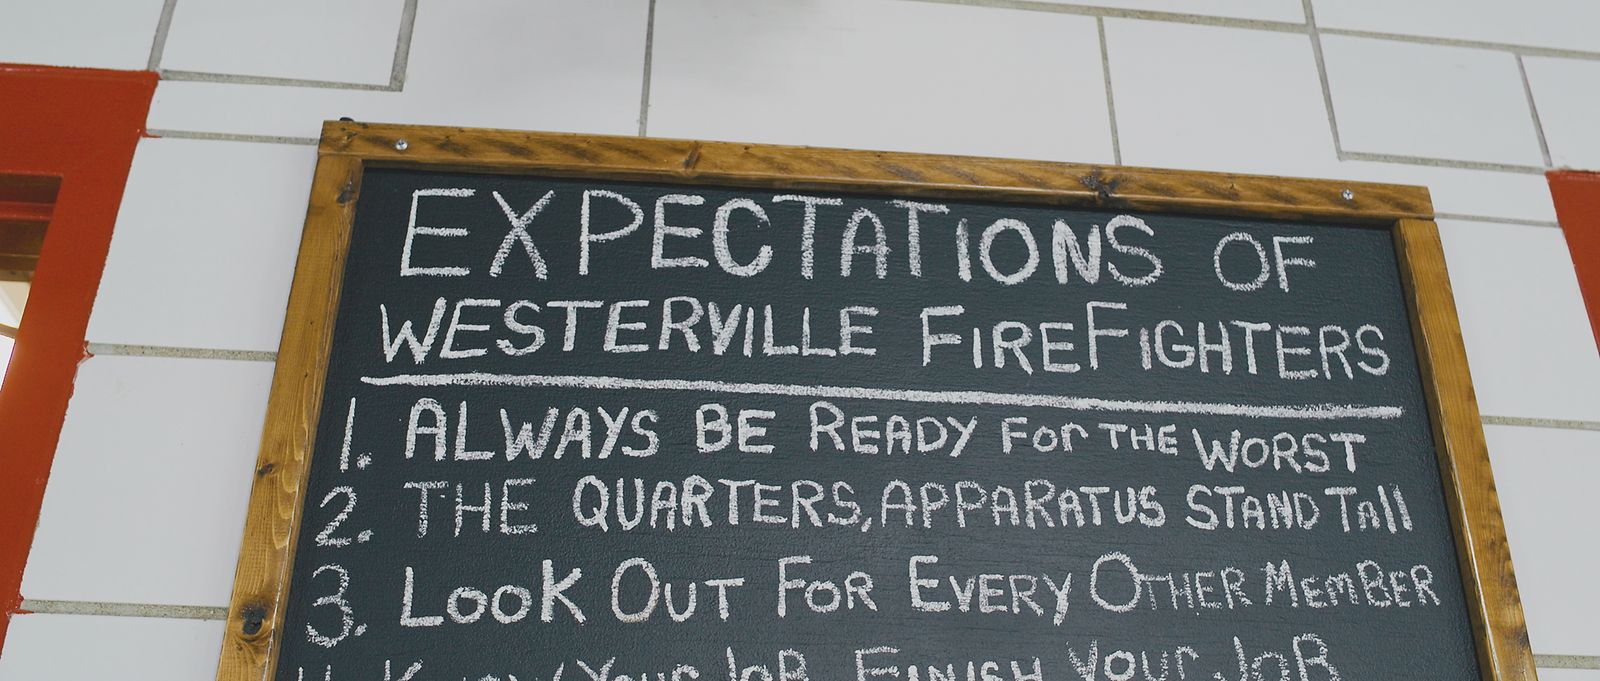 EXPECTATIONS OF
WESTERVILLE FIREFIGHTERS
1. ALWAYS BE READY FOr THE WORST
2. THE QUARTERS, APPARATUS STAND TAll
3. LOOK OUT FOR EVERY OTHER MEMBER
4. KNOW YOUr JOB, FINISH YOUr JOB